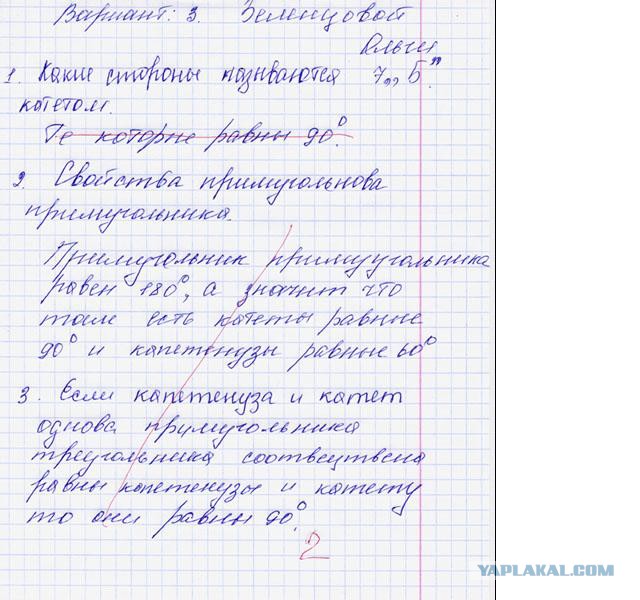 Вариант: 3. Зеленцовой
Ольги
1. Какие стороны называются 7„Б”.
катетом.
Те которые равны 90°.
2. Свойства примугольнова
примугольника.
Примугольник примуугольника
равен 180°, а значит что
там есть катеты равные
90° и капетенузы равные 60°
3. Если капетенуза и катет
однова примугольника
треугольника соотвецтвена
равны капетенузы и катету
то они равны 90°.
2
YAPLAKAL.COM